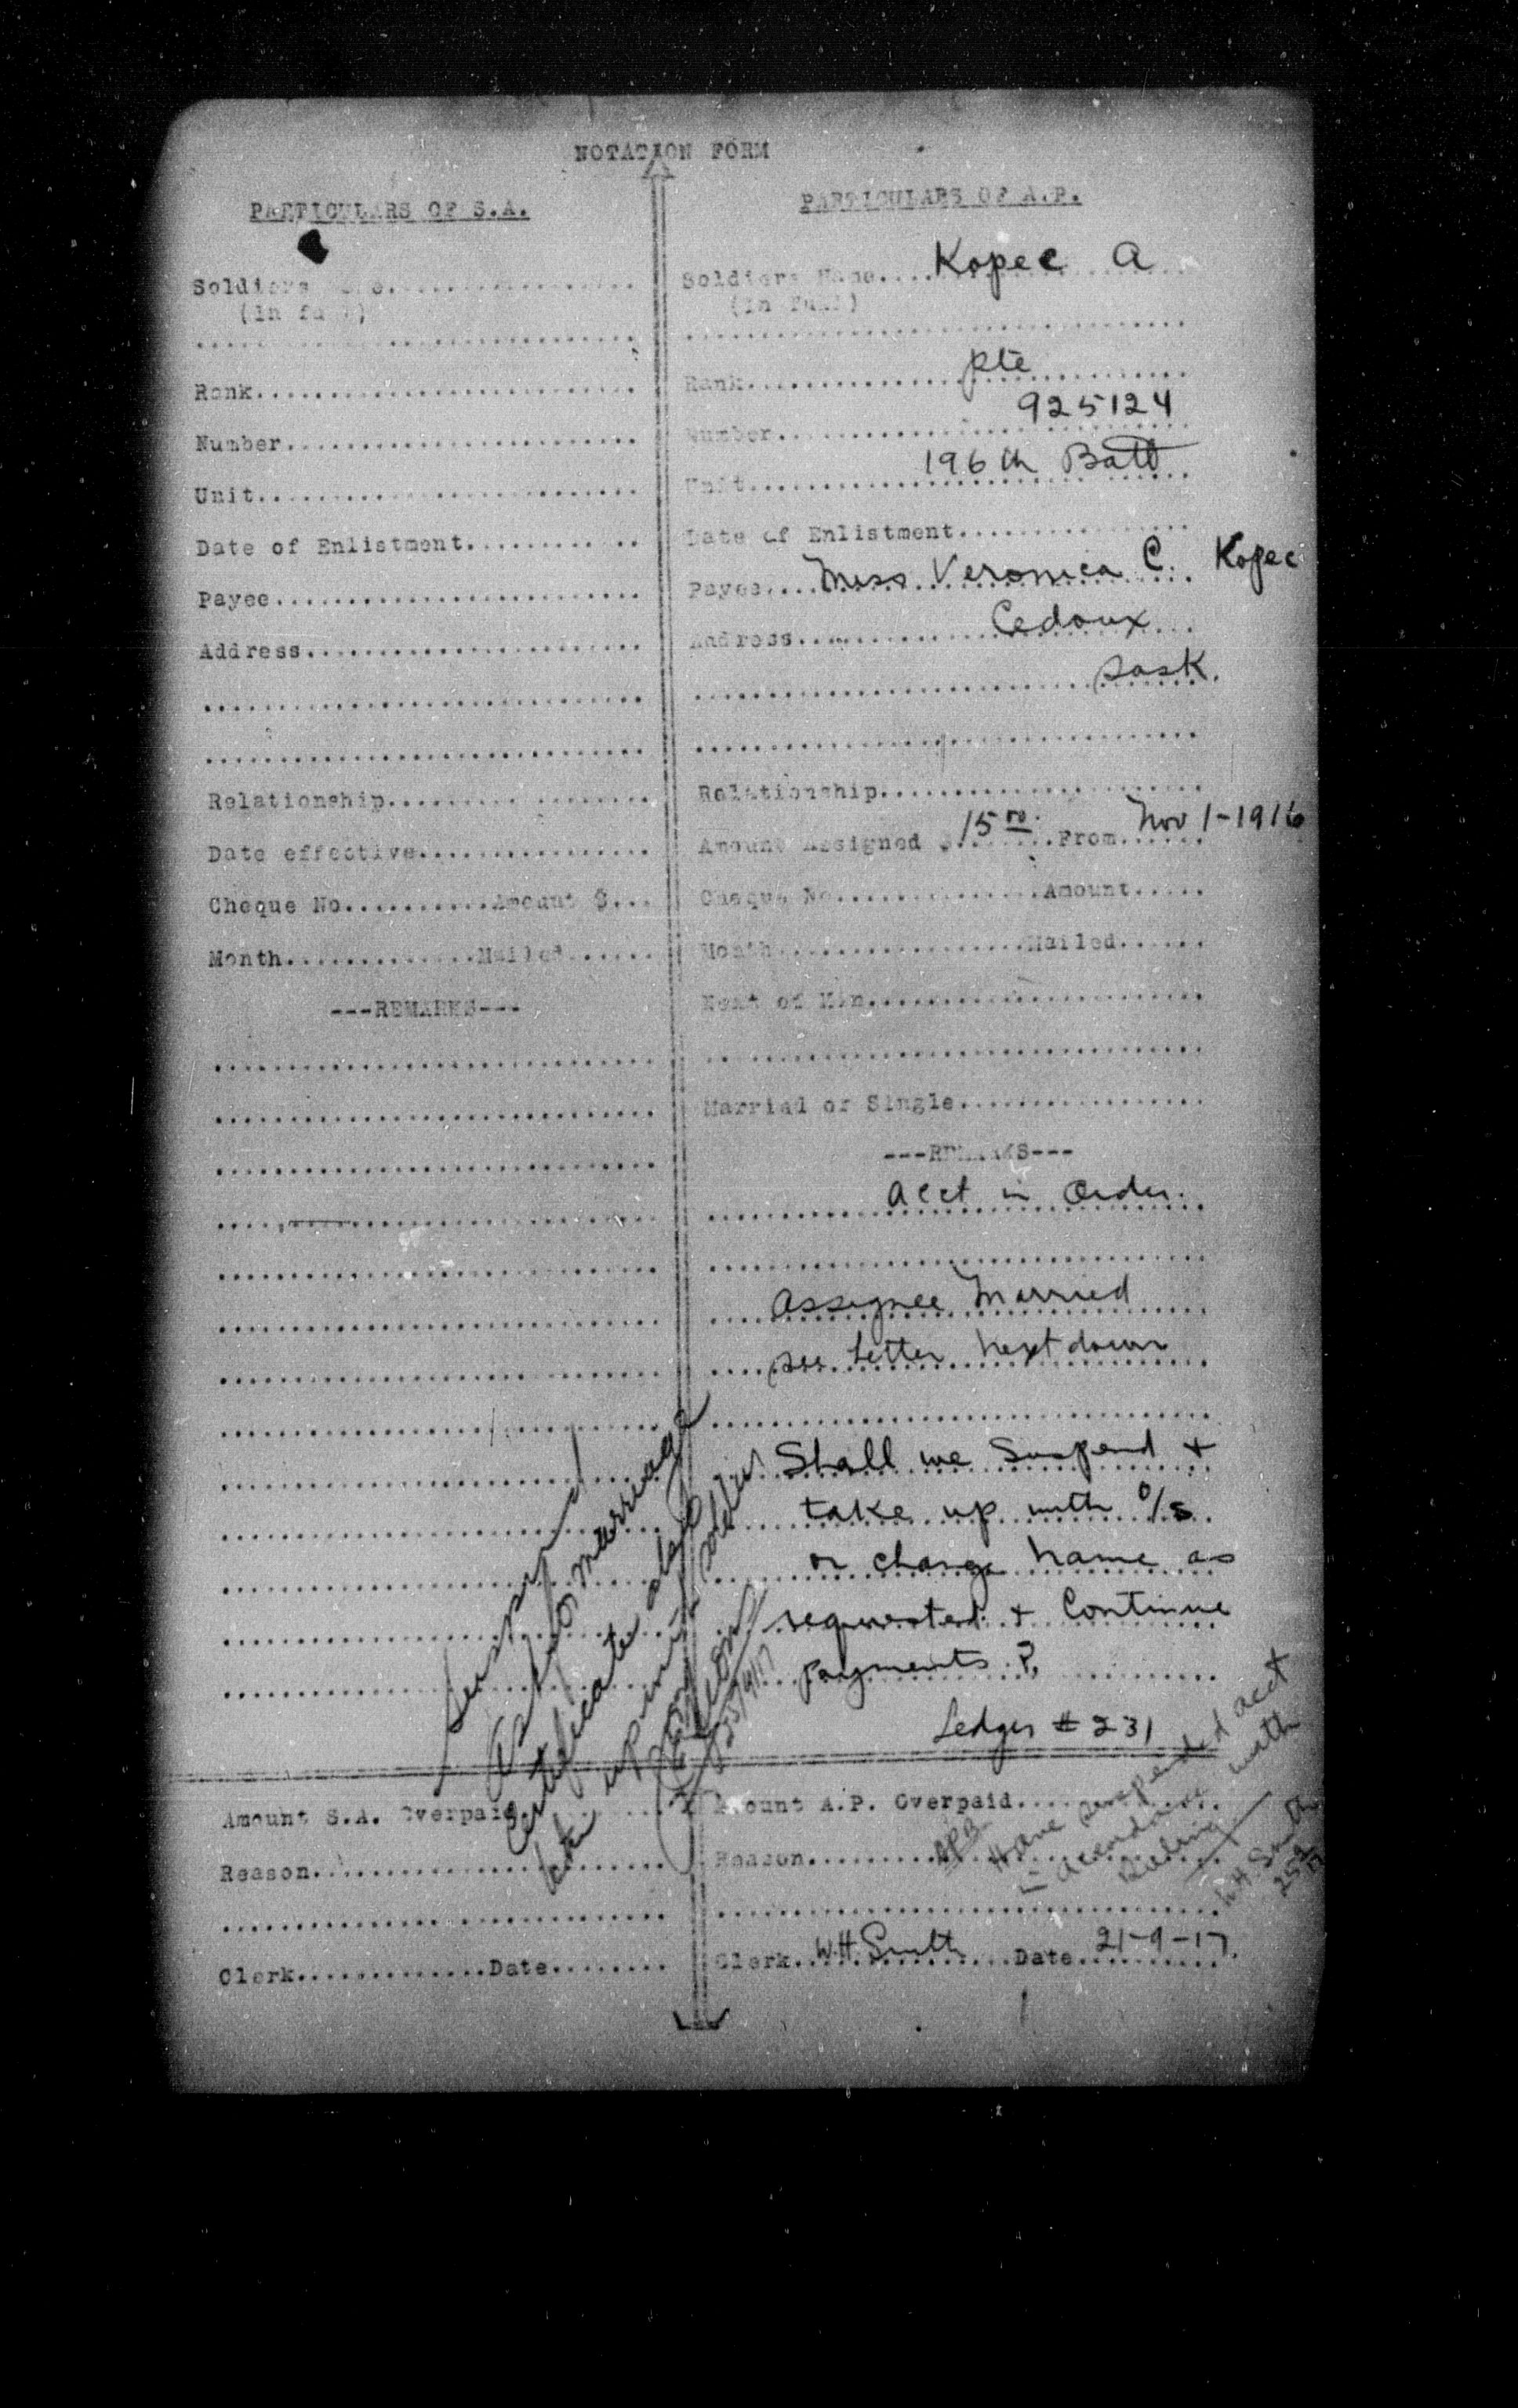 NOTATION FORM
PARTICULARS OF S.A.
Soldiers
(In full)
Rank
Number
Unit
Date of Enlistment
Payee
Address
Relationship
Date effective
Cheque No. Amount $
Month Mailed
---REMARKS---
PARTICULARS OF A.P.
Soldiers Name Kopec A
(In Full)
Rank Pte
Number 925124
Unit 196th Batt
Date of Enlistment
Payee Miss Veronica C. Kopec
Address Cedoux
Sask.
Relationship
Amount Assigned $ 15 00 From Nov 1-1916
Cheque No Amount
Month Mailed
Next of Kin
Married or Single
---REMARKS---
Acct in Order.
Assignee Married
see letter next down
Shall we Suspend +
take up with o/s
or change name as
requested + Continue
payments?
Ledger # 231
Suspend
marriage
Certificate
take up soldier
25/9/17
Amount S.A. Overpaid
Reason
Clerk Date
Amount A.P. Overpaid
Reason
Have suspended acct
in accordance with
Ruling
W.H. Smith
Clerk W.H. Smith Date 21-9-17.